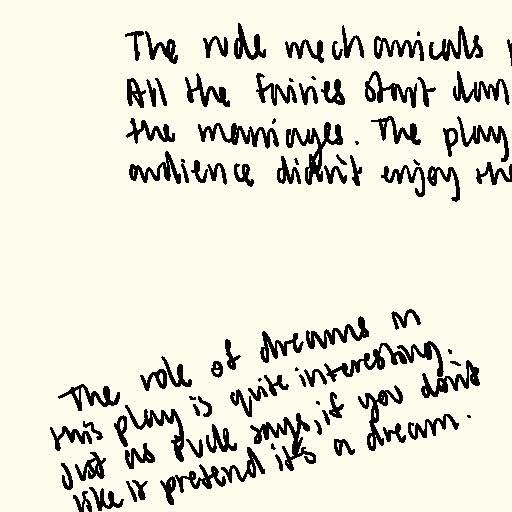 The rude mechanicals
All the fairies start dan
the marriages. The play
audience didn't enjoy the
The role of dreams in
this play is quite interesting.
Just as Puck says, if you don't
like it pretend it's a dream.